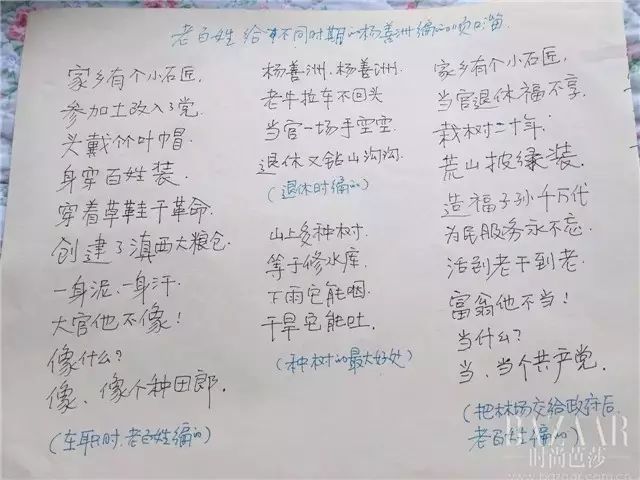 老百姓给不同时期的杨善洲编的顺口溜.
家乡有个小石匠.
参加土改入了党.
头戴竹叶帽.
身穿百姓装.
穿着草鞋干革命.
创建了滇西大粮仓.
一身泥、一身汗.
大官他不像!
像什么?
像、像个种田郎.
(在职时.老百姓编的)
杨善洲.杨善洲.
老牛拉车不回头
当官一场手空空.
退休又钻山沟沟.
(退休时编的)
山上多种树.
等于修水库.
下雨它能咽.
干旱它能吐.
(种树的最大好处)
家乡有个小石匠.
当官退休福不享.
栽树二十年.
荒山披绿装.
造福子孙千万代
为民服务永不忘.
活到老干到老.
富翁他不当!
当什么?
当、当个共产党.
(把林场交给政府后
老百姓编的)
BAZAAR
时尚芭莎